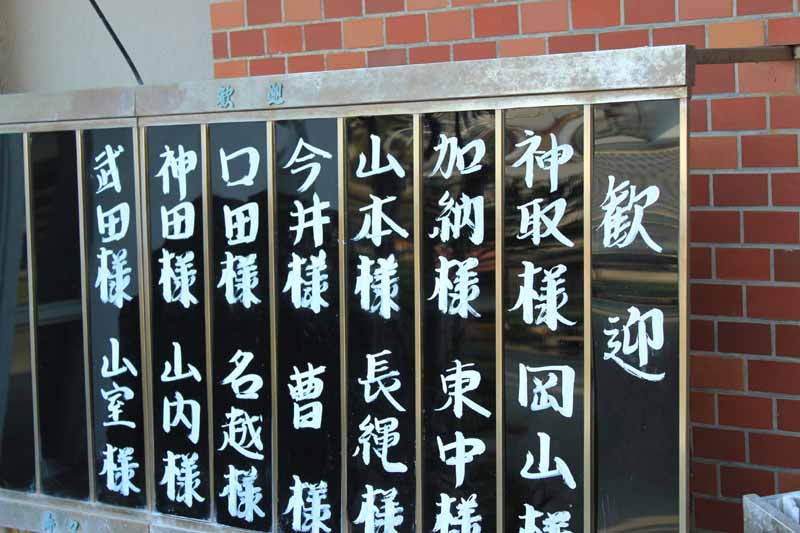 歓迎
歓迎
神取様 岡山様
加納様 東中様
山本様 長縄様
今井様 曹様
口田様 名越様
神田様 山内様
武田様 山室様